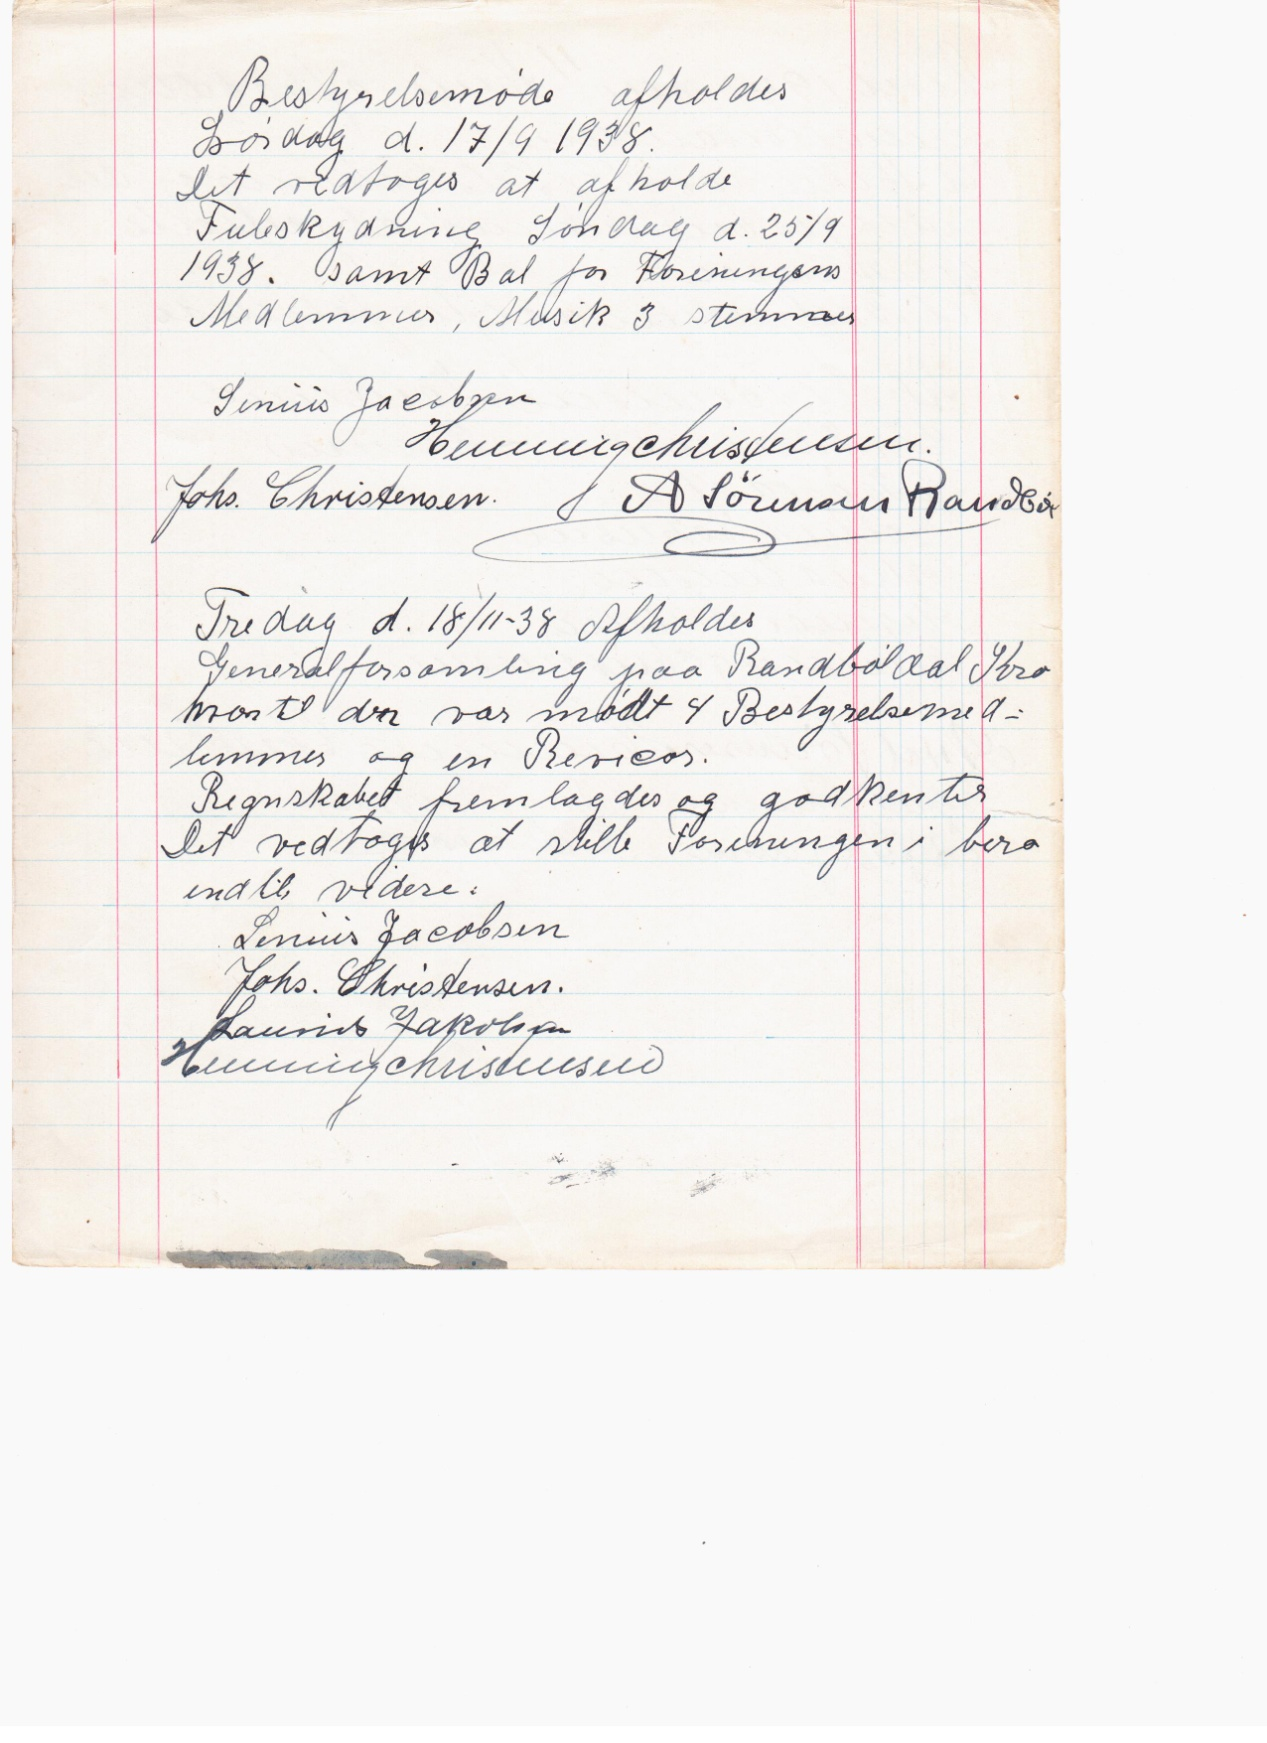 Bestyrelsemøde afholdes
Lørdag d. 17/9 1938.
Det vedtoges at afholde
Fuleskydning Søndag d. 25/9
1938. samt Bal for Foreningens
Medlemmer, Musik 3 stemmer
Jacobsen
Henning Christensen.
Johs. Christensen. A Sörman Randbøl
Fredag d. 18/11-38 Afholdes
Generalforsamling paa Randbøldal Kro
hvortil der var mødt 4 Bestyrelsemed=
lemmer og en Revicor.
Regnskabet fremlagdes og godkentes
Det vedtoges at stille Foreningen i bero
indtil videre.
Jacobsen
Johs. Christensen.
Laurids Jakobsen
Henning Christensen